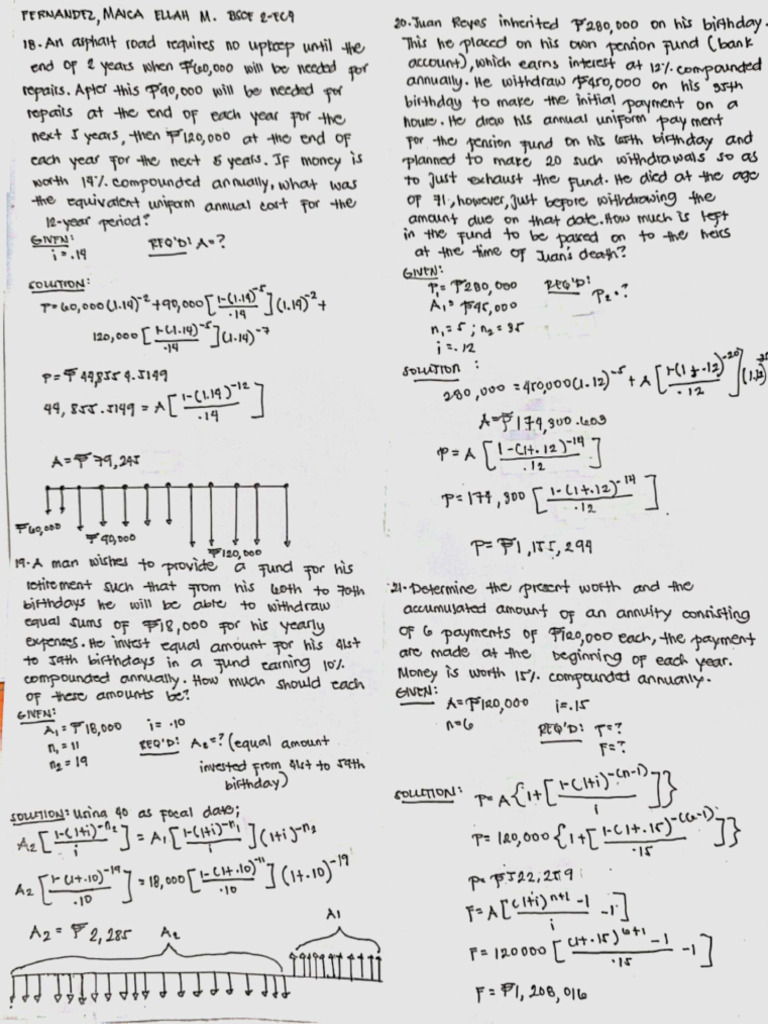 FERNANDEZ, MAICA ELLAH M. BSCE 2-EC9
18. An asphalt road requires no upkeep until the
end of 2 years when ₱60,000 will be needed for
repairs. After this ₱90,000 will be needed for
repairs at the end of each year for the
next 5 years, then ₱120,000 at the end of
each year for the next 5 years. If money is
worth 14% compounded annually, what was
the equivalent uniform annual cost for the
12-year period?
GIVEN:
i = .14
REQ'D: A=?
SOLUTION:
P=60,000(1.14)^-2 + 90,000[(1-(1.14)^-5)/.14](1.14)^-2 +
120,000[(1-(1.14)^-5)/.14](1.14)^-7
P=₱ 44,855 4.5149
44,855.5149 = A[(1-(1.14)^-12)/.14]
A=₱ 79,245
₱60,000
₱90,000
₱120,000
19. A man wishes to provide a fund for his
retirement such that from his 60th to 70th
birthdays he will be able to withdraw
equal sums of ₱18,000 for his yearly
expenses. He invest equal amount for his 41st
to 59th birthdays in a fund earning 10%
compounded annually. How much should each
of these amounts be?
GIVEN:
A₁=₱18,000 i= .10
n₁=11 REQ'D: A₂=? (equal amount
n₂=19 invested from 41st to 59th
birthday)
SOLUTION: Using 40 as focal date;
A₂[(1-(1+i)^-n₂)/i] = A₁[(1-(1+i)^-n₁)/i](1+i)^-n₂
A₂[(1-(1+.10)^-19)/.10] = 18,000[(1-(1+.10)^-11)/.10](1+.10)^-19
A₂ = ₱2,285
A₂
A1
20. Juan Reyes inherited ₱280,000 on his birthday.
This he placed on his own pension fund (bank
account), which earns interest at 12% compounded
annually. He withdraw ₱450,000 on his 35th
birthday to make the initial payment on a
house. He drew his annual uniform payment
for the pension fund on his 65th birthday and
planned to make 20 such withdrawals so as
to just exhaust the fund. He died at the age
of 71, however, just before withdrawing the
amount due on that date. How much is left
in the fund to be passed on to the heirs
at the time of Juan's death?
GIVEN:
P₁= ₱280,000 REQ'D:
A₁= ₱45,000 P₂=?
n₁=5 ; n₂=35
i=.12
SOLUTION :
280,000=450,000(1.12)^-5 + A[(1-(1+.12)^-20)/.12](1.12)
A=₱174,300.603
P=A[(1-(1+.12)^-14)/.12]
P=174,300[(1-(1+.12)^-14)/.12]
P=₱1,155,299
21. Determine the present worth and the
accumulated amount of an annuity consisting
of 6 payments of ₱120,000 each, the payment
are made at the beginning of each year.
Money is worth 15% compounded annually.
GIVEN:
A=₱120,000 i=.15
n=6 REQ'D: P=?
F=?
SOLUTION: P=A{1+[(1-(1+i)^-(n-1))/i]}
P=120,000{1+[(1-(1+.15)^-(6-1))/.15]}
P=₱522,259
F=A[((1+i)^n+1 -1)/i -1]
F=120000[((1+.15)^6+1 -1)/.15 -1]
F=₱1,208,016